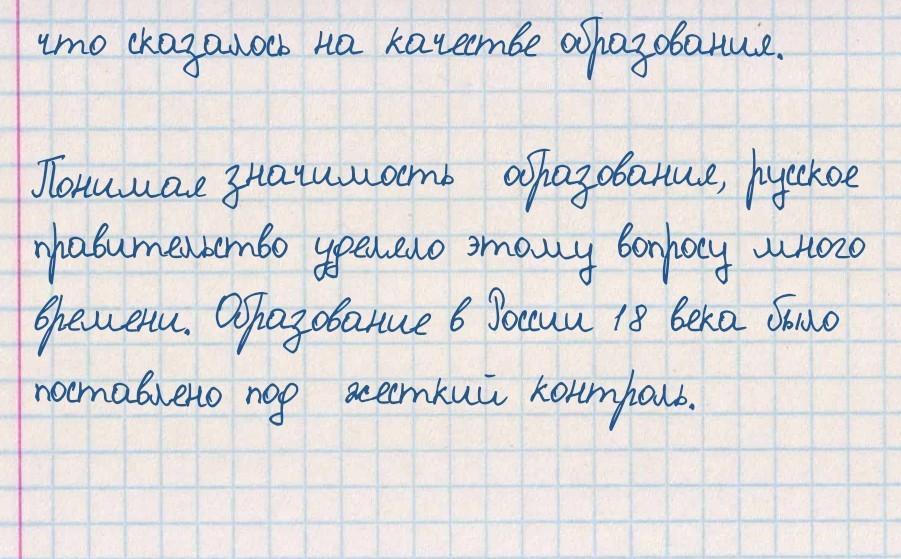 что сказалось на качестве образования.
Понимая значимость образования, русское
правительство уделяло этому вопросу много
времени. Образование в России 18 века было
поставлено под жесткий контроль.